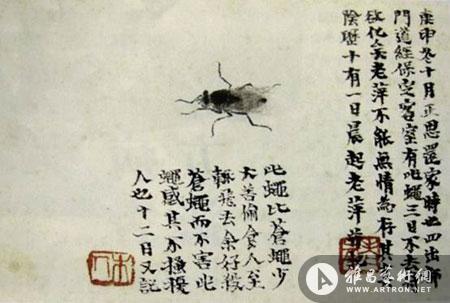 庚申冬十月正思還家時也四出都
門道經保定客室有此蠅三日不去將
欲化矣老萍不能無情為存其真
陰曆十有一日晨起老萍並記
此蠅比蒼蠅少
大善偷食人至
輒飛去余好殺
蒼蠅而不害此
蠅感其不搔擾
人也十二日又記
木人
雅昌藝術網
WWW.ARTRON.NET